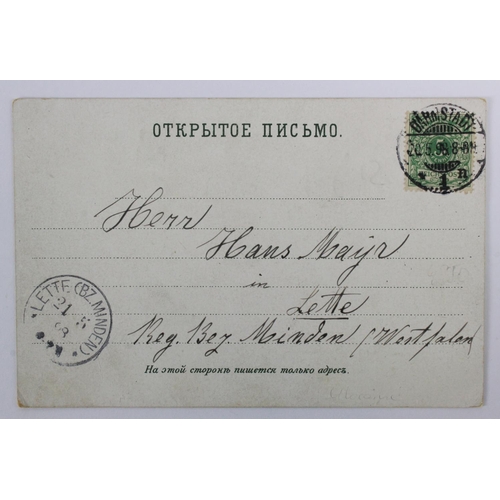 ОТКРЫТОЕ ПИСЬМО.
Herr
Hans Mayr
in
Lette
Reg. Bez Minden (Westfalen)
LETTE (BZ. MINDEN)
21
5
На этой сторонѣ пишется только адресъ.